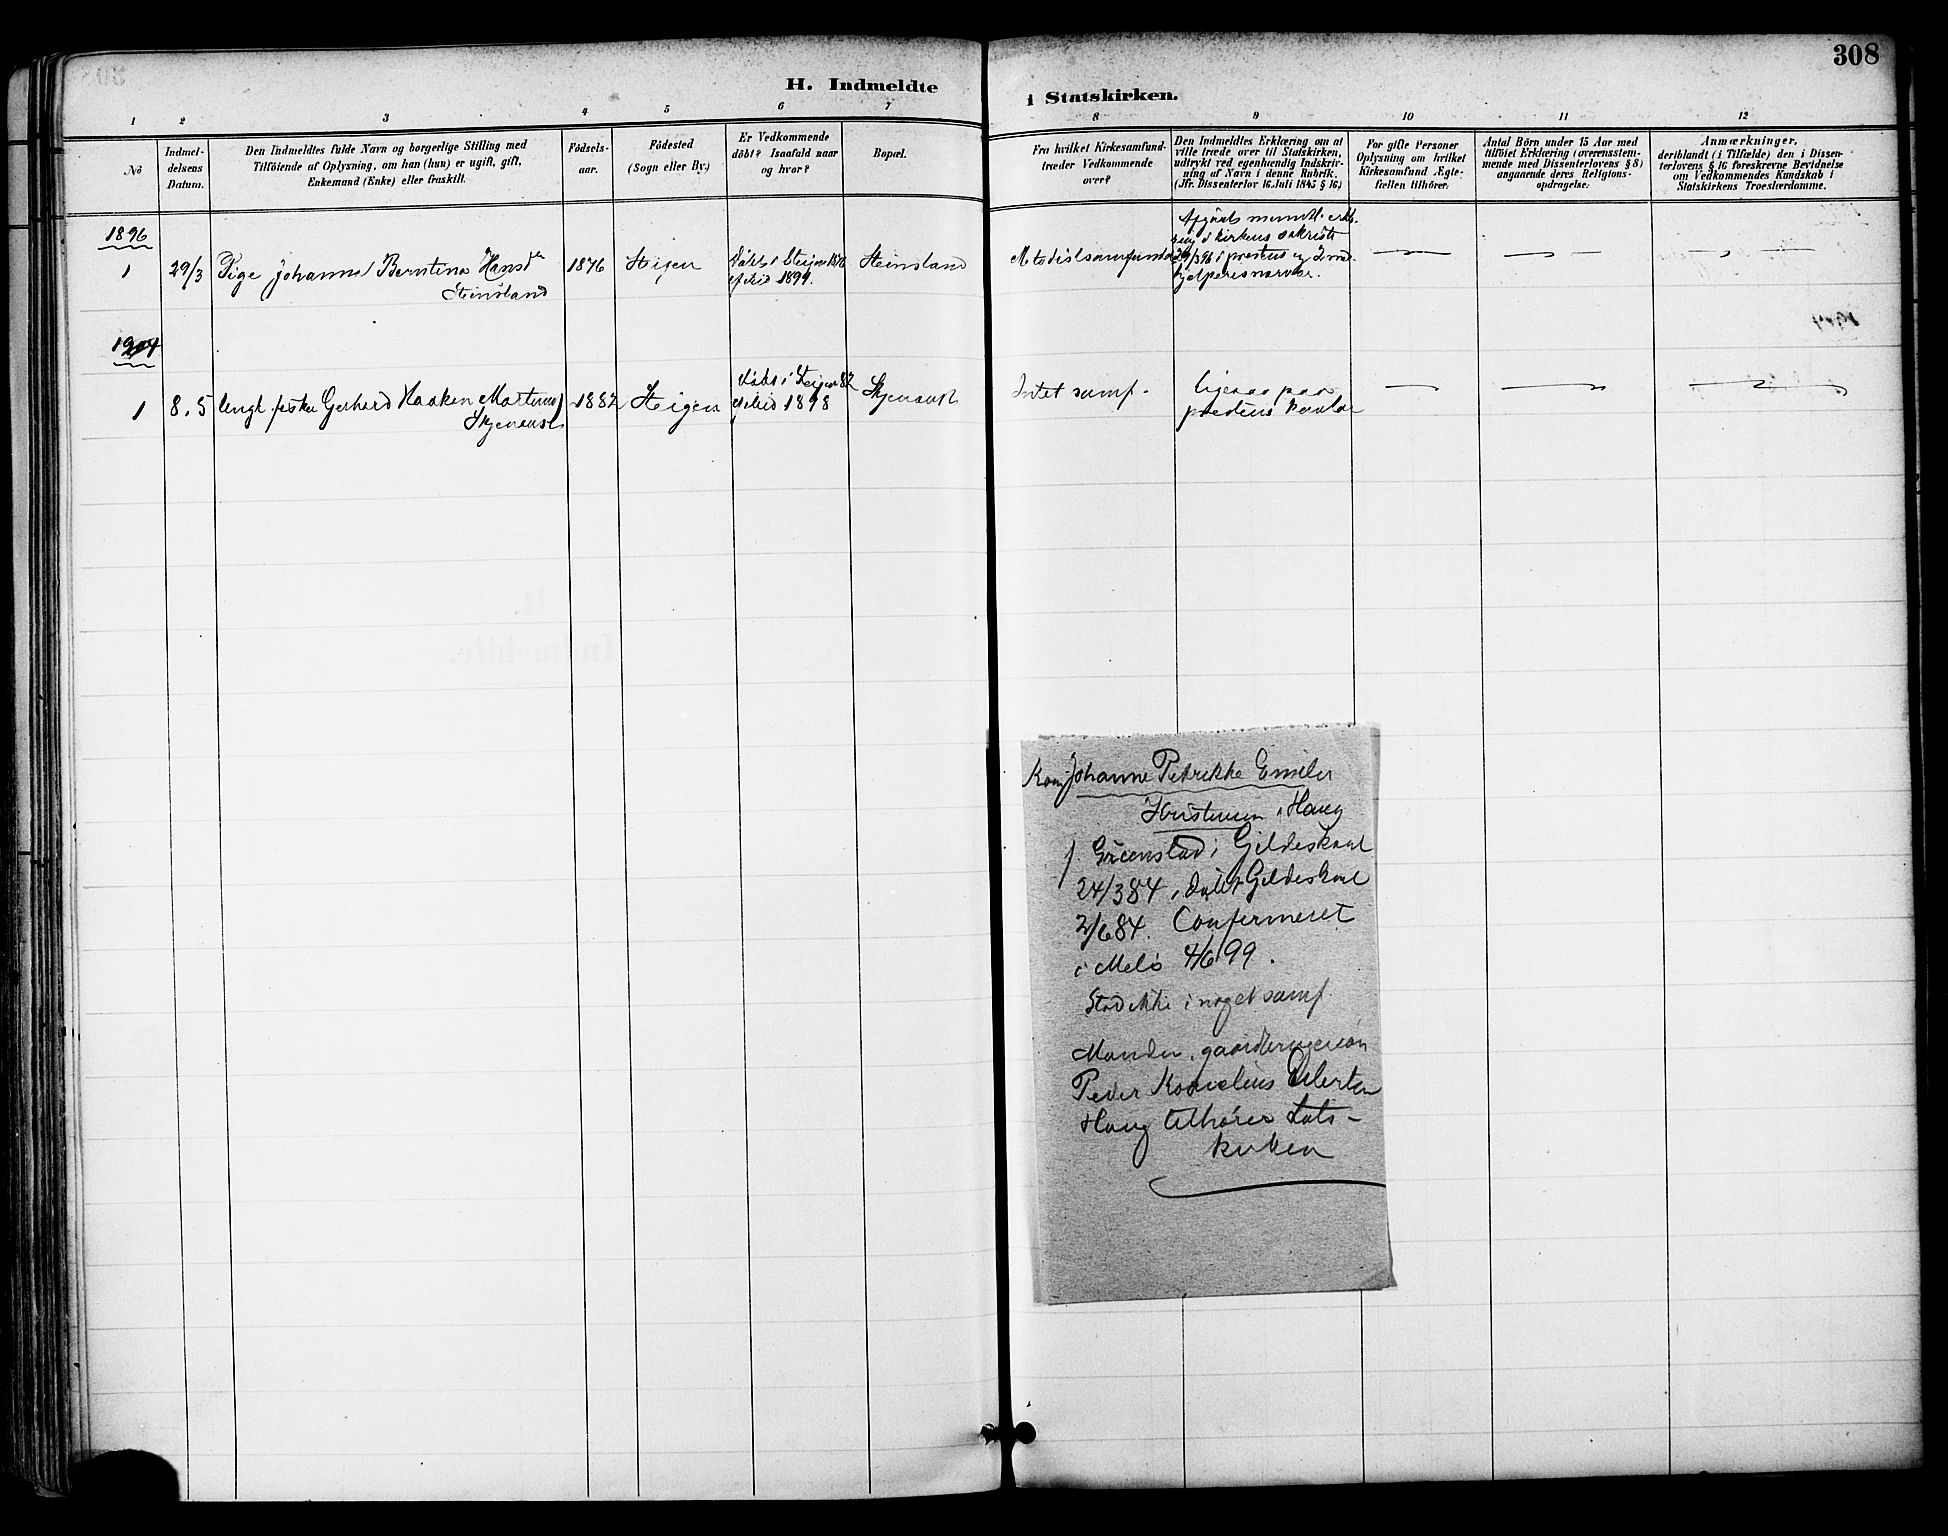 308
H. Indmeldte
i Statskirken.
1 2 3 4 5 6 7 8 9 10 11 12
No
Indmel-
delsens
Datum.
Den Indmeldtes fulde Navn og borgerlige Stilling med
Tilföiende af Oplysning, om han (hun) er ugift, gift,
Enkemand (Enke) eller fraskilt.
Födsels-
aar.
Födested
(Sogn eller By.)
Er Vedkommende
döbt? Isaafald naar
og hvor?
Bopæl.
Fra hvilket Kirkesamfund
træder Vedkommende
over?
Den Indmeldtes Erklæring om at
ville træde over til Statskirken,
udtrykt ved egenhændig Indskriv-
ning af Navn i denne Rubrik.
(Jfr. Dissenterlov 16. Juli 1845 § 16.)
For gifte Personer
Oplysning om hvilket
Kirkesamfund Ægte-
fællen tilhörer.
Antal Börn under 15 Aar med
tilföiet Erklæring (overensstem-
mende med Dissenterlovens § 8)
angaaende deres Religions-
opdragelse.
Anmærkninger,
deriblandt (i Tilfælde) den i Dissen-
terlovens § 16 foreskrevne Bevidnelse
om Vedkommendes Kundskab i
Statskirkens Troeslærdomme.
1896
1
29/3
Pige Johanne Berntine Hansdr
Steinsland
1876
Steigen
Döbt i Steigen 1876
1894.
Steinsland
Metodistsamfundet
Afgivet mundtl. erkl.
i kirkens sakristi
29/3 96 i prestens og
hjelperes nærvær.
1904
1
8.5
Ungk. fisker Gerhard Haaken Martinus
Skjenaust
1882
Steigen
döbt i Steigen 82
1898
Skjenaust
Intet samf.
ligesaa paa
prestens kontor
Kone Johanne Petrikke Emilie
Kristensen, Haug
f. Grönstad i Gildeskaal
24/3 84, döbt Gildeskaal
2/6 84. Confirmeret
i Melö 4/6 99.
Stod ikke i noget samf.
Manden, gaardbruger
Peder Kornelius Eilertsen
Haug tilhörer Stats-
kirken